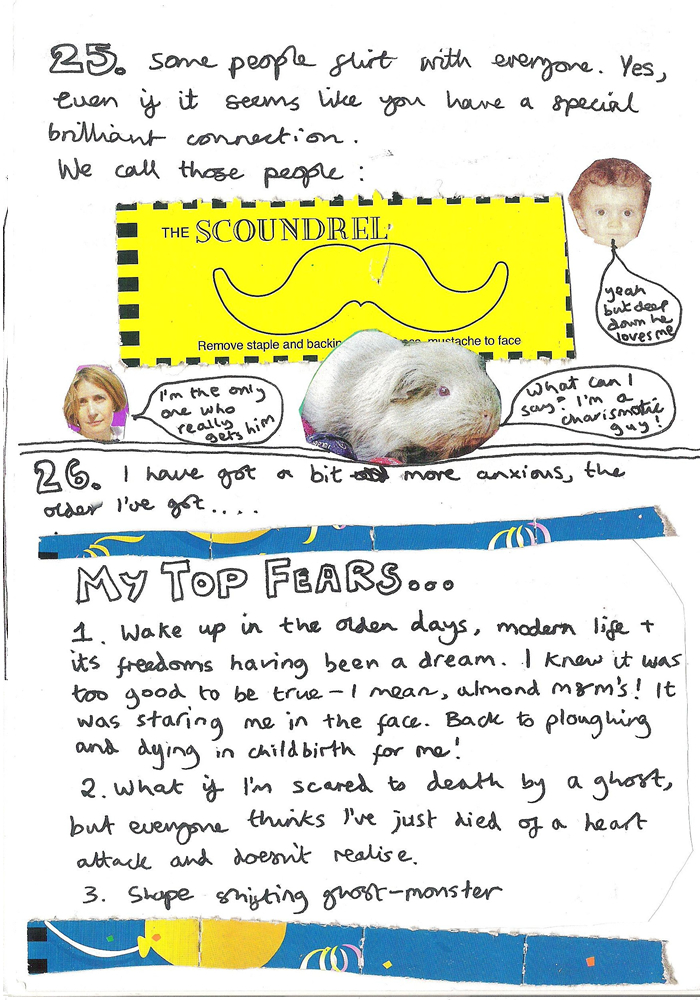 25. Some people flirt with everyone. Yes,
even if it seems like you have a special
brilliant connection.
We call those people:
THE SCOUNDREL
Remove staple and backin
mustache to face
yeah
but deep
down he
loves me
I'm the only
one who
really
gets him
What can I
say? I'm a
charismatic
guy!
26. I have got a bit more anxious, the
older I've got....
MY TOP FEARS...
1. Wake up in the olden days, modern life +
its freedoms having been a dream. I knew it was
too good to be true - I mean, almond m&m's! It
was staring me in the face. Back to ploughing
and dying in childbirth for me!
2. What if I'm scared to death by a ghost,
but everyone thinks I've just died of a heart
attack and doesn't realise.
3. Shape shifting ghost-monster